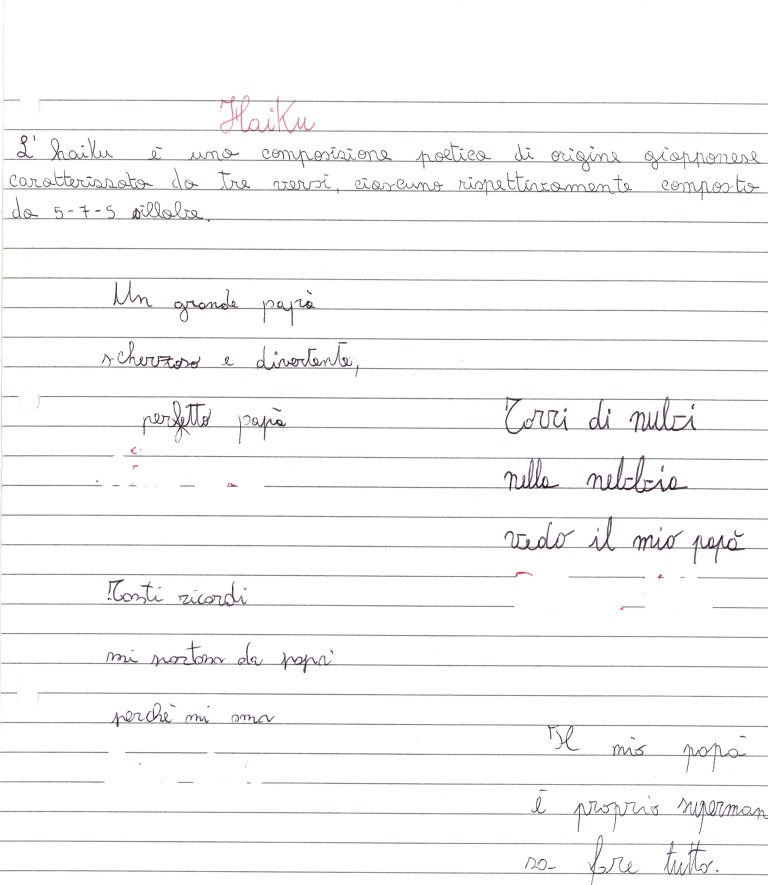 Haiku
L'haiku è una composizione poetica di origine giapponese
caratterizzata da tre versi, ciascuno rispettivamente composto
da 5-7-5 sillabe.
Un grande papà
scherzoso e divertente,
perfetto papà
Torri di nubi
nella nebbia
vedo il mio papà
Tanti ricordi
mi portan da papà
perchè mi ama
Il mio papà
è proprio superman
sa fare tutto.